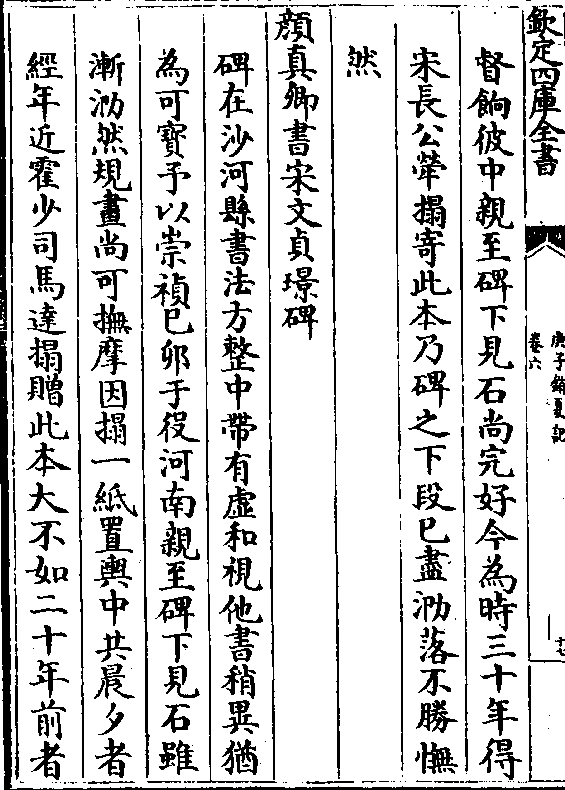 欽定四庫全書
庚子銷夏記
卷六
十七
督餉彼中親至碑下見石尚完好今為時三十年得
宋長公犖搨寄此本乃碑之下段已盡泐落不勝憮
然
顔真卿書宋文貞璟碑
碑在沙河縣書法方整中帶有虛和視他書稍異猶
為可寶予以崇禎已卯于役河南親至碑下見石雖
漸泐然規畫尚可撫摩因搨一紙置輿中共晨夕者
經年近霍少司馬達搨贈此本大不如二十年前者